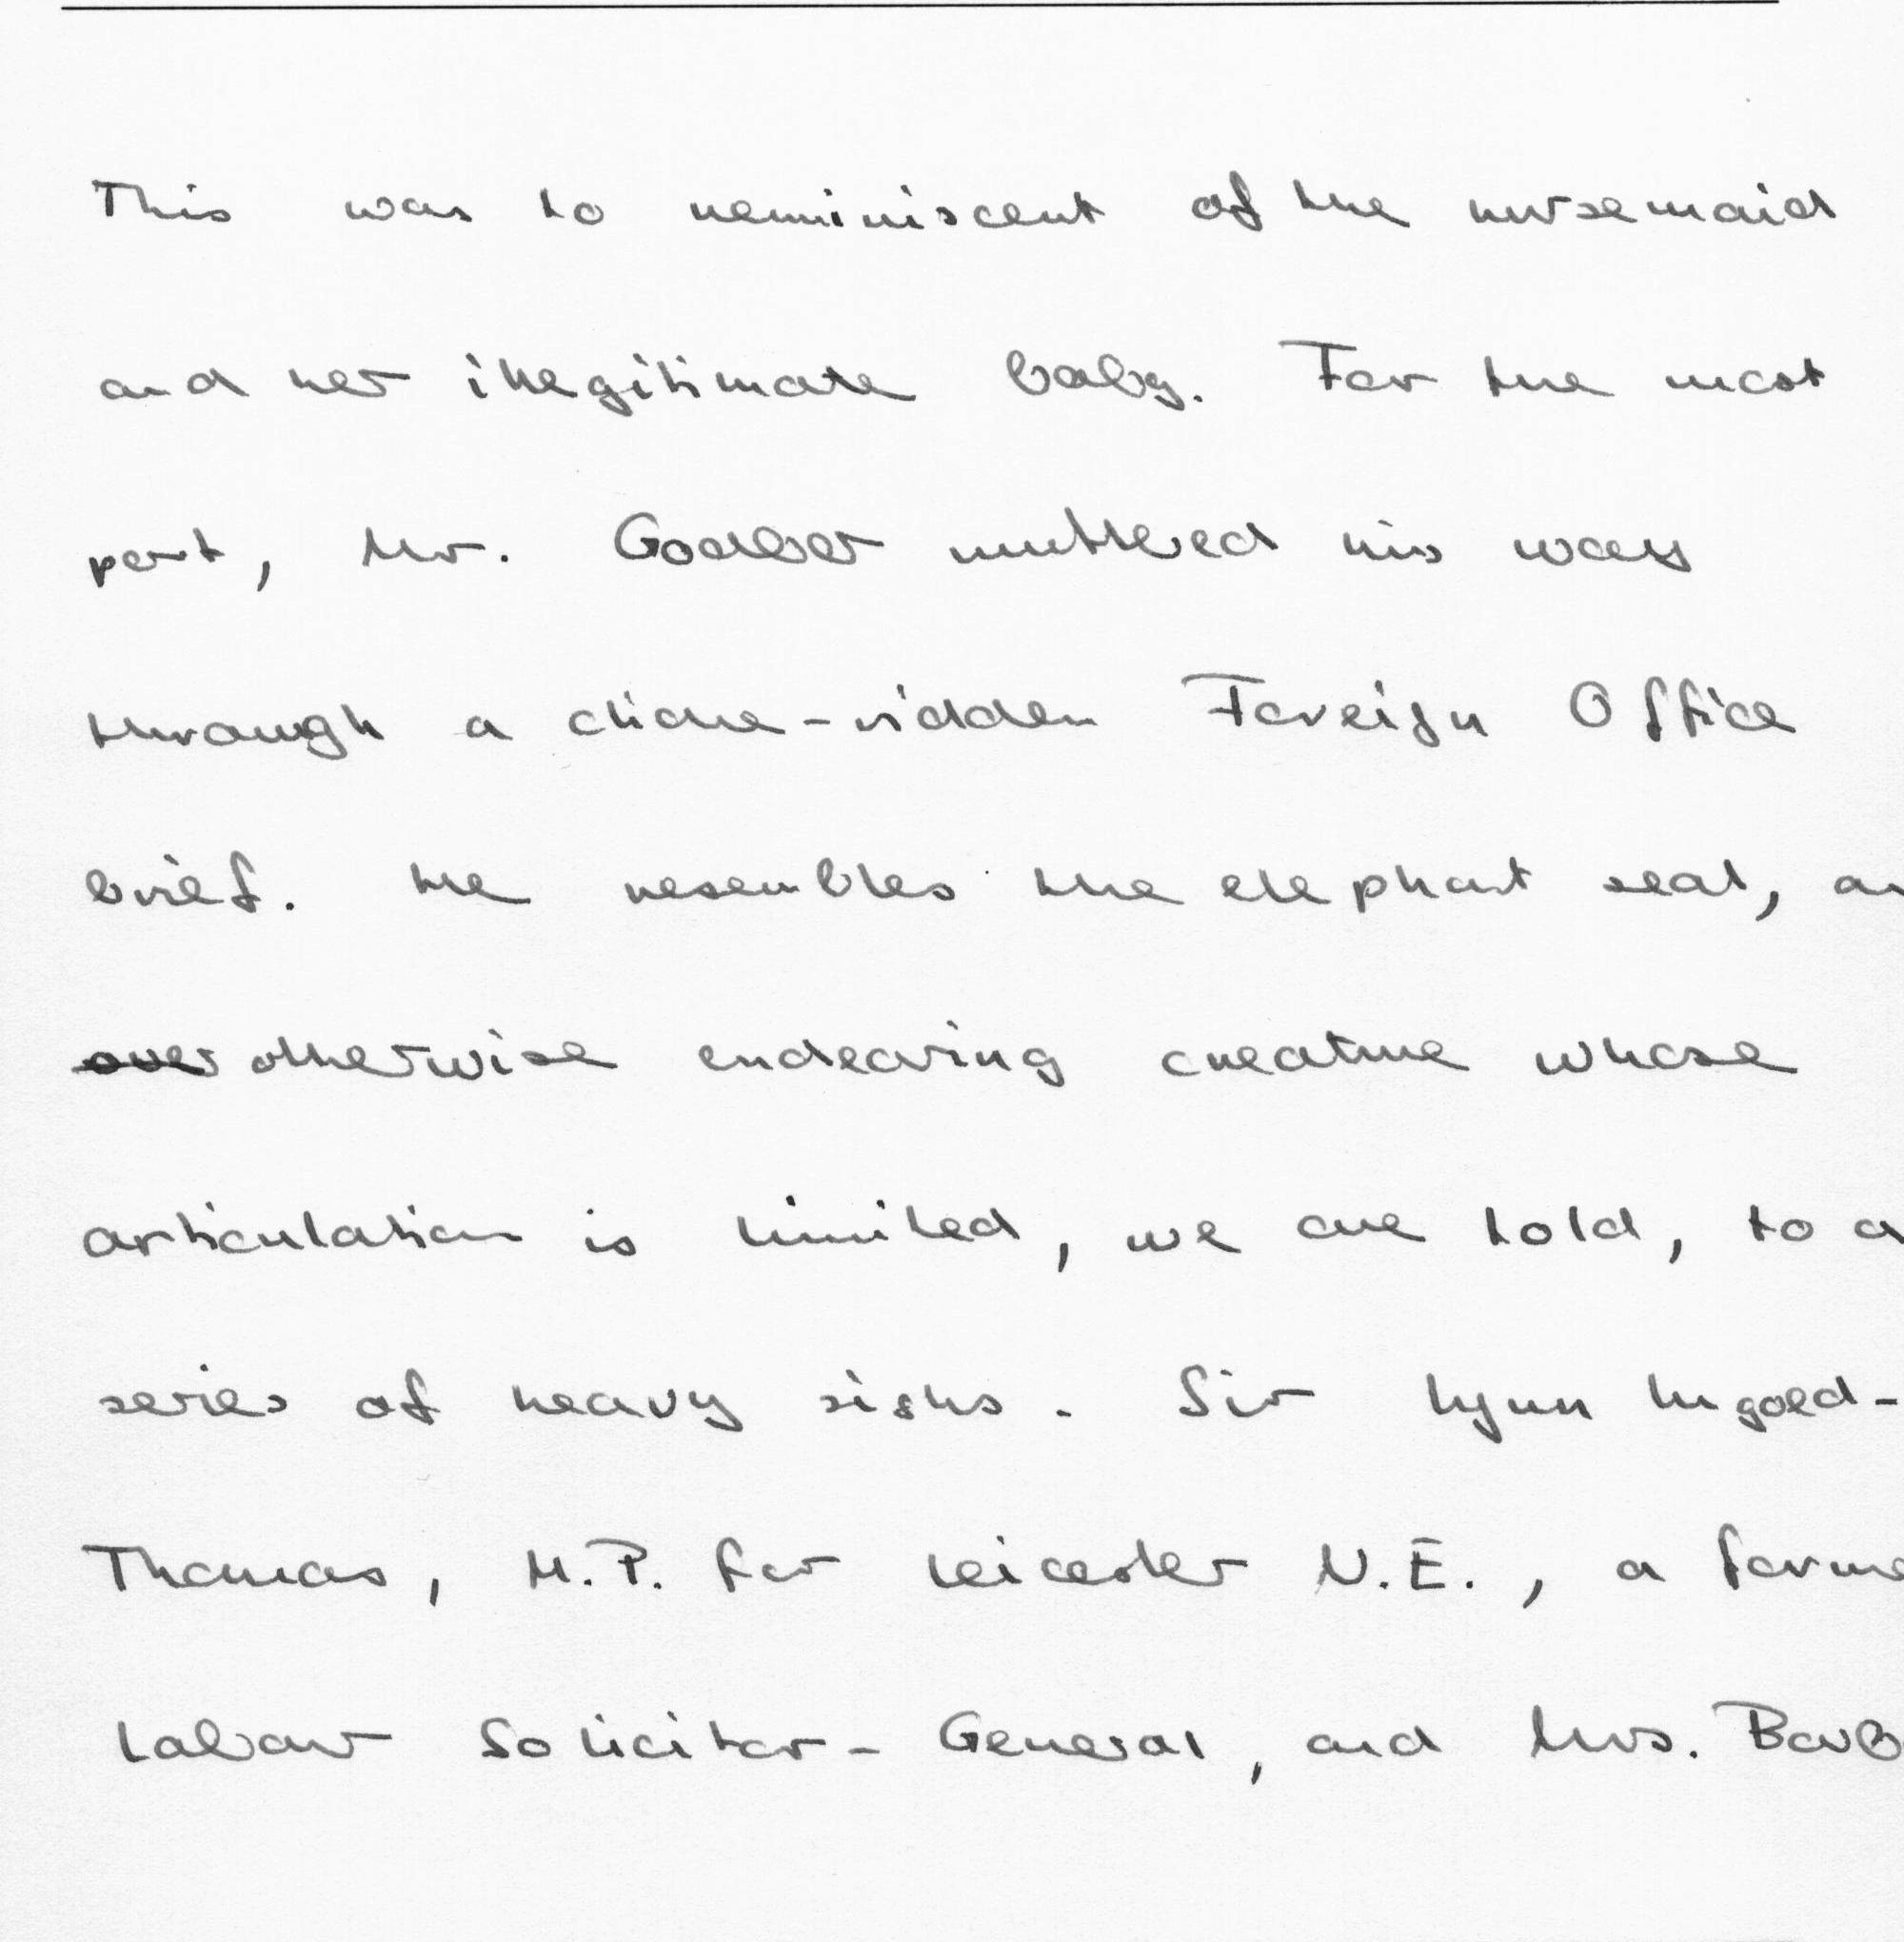 This was to reminiscent of the nursemaid
and her illegitimate baby. For the most
part, Mr. Godber muttered his way
through a cliche-ridden Foreign Office
brief. He resembles the elephant seal, an
over otherwise endearing creature whose
articulation is limited, we are told, to a
series of heavy sighs. Sir Lynn Ungoed-
Thomas, M.P. for Leicester N.E., a forme
Labour Solicitor-General, and Mrs. Barb